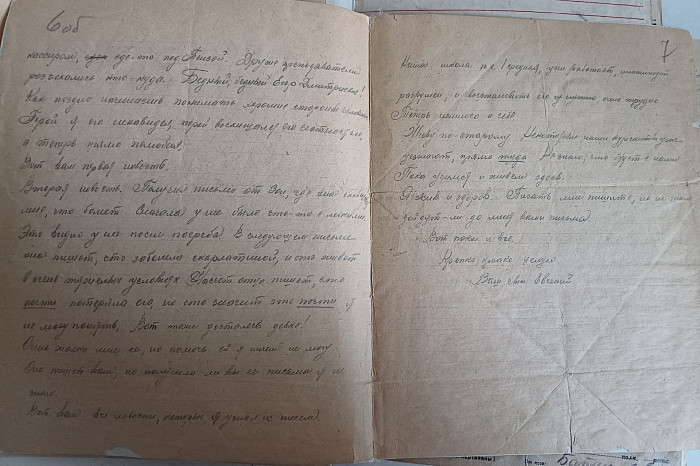 6 об
кассиром, где-то под Пензой. Другие преподаватели
разъехались кто-куда. Бедный, бедный Егор Дмитриевич!
Как поздно начинаешь понимать хорошие стороны человека.
Порой я его ненавидел, порой восхищался его
а теперь прямо полюбил.
Вот вам первая новость.
Вторая новость. Получил письмо от Зои, где она
мне, что болеет. Сначала у ней было что-то с легкими.
Это видно у ней после погреба! В следующем письме
она пишет, что заболела скарлатиной, и что живет
в очень тяжелых условиях. Насчет отца пишет, что
почти потеряла его, но что значит это почти я
не могу понять. Вот жены досталось девке!
Очень жалко мне ее, но помочь ей я ничем не могу
Она пишет вам, но получили ли вы ее письма я не
знаю.
Вот вам все новости, которые я узнал из писем.
7
Наша школа № 1 средняя, уже работает, институт
разрушен, и восстановить его очень трудно
Теперь немного о себе.
Живу по-старому Некоторые наши курсанты уже
уезжают, прямо туда Не знаю, что будет с нами
Пока учимся и живем здесь.
Я жив и здоров. Писать мне пишите, но не знаю
дойдут-ли до меня ваши письма.
Вот пока и все.
Крепко крепко целую
Ваш сын Евгений